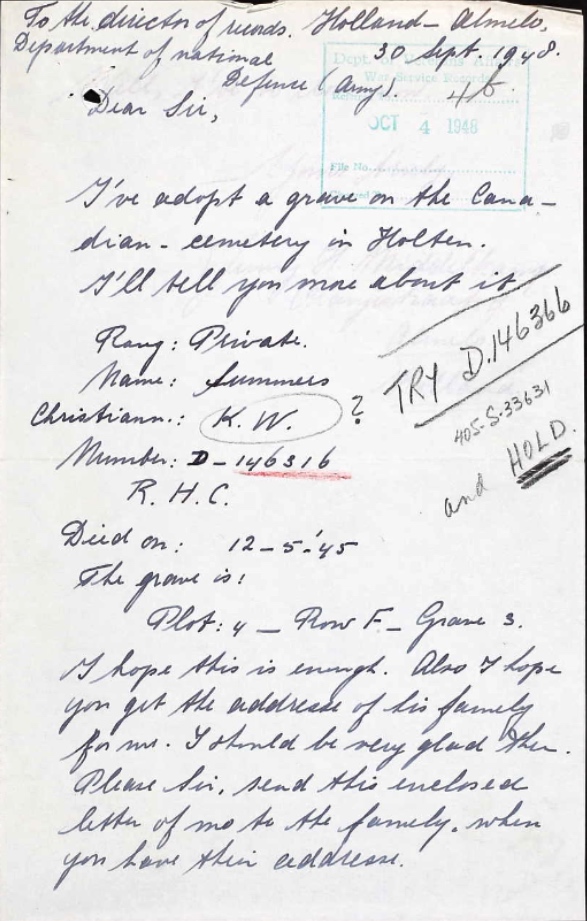 To the director of records. Holland - Almelo,
Department of national 30 Sept. 1948.
Defence (Army).
Dept. of Veterans Affairs
War Service Records
OCT 4 1948
File No.
Dear Sir,
I've adopt a grave on the Cana-
dian - cemetery in Holten.
I'll tell you more about it
Rang: Private.
Name: Summers
Christiann.: K. W. ?
Number: D - 146316
R. H. C.
TRY D.146366
405-S-33631
and HOLD.
Died on: 12 - 5 - '45
The grave is:
Plot: 4 - Row F - Grave 3.
I hope this is enough. Also I hope
you get the addresse of his family
for me. I should be very glad then.
Please Sir, send this enclosed
letter of me to the family, when
you have their addresse.